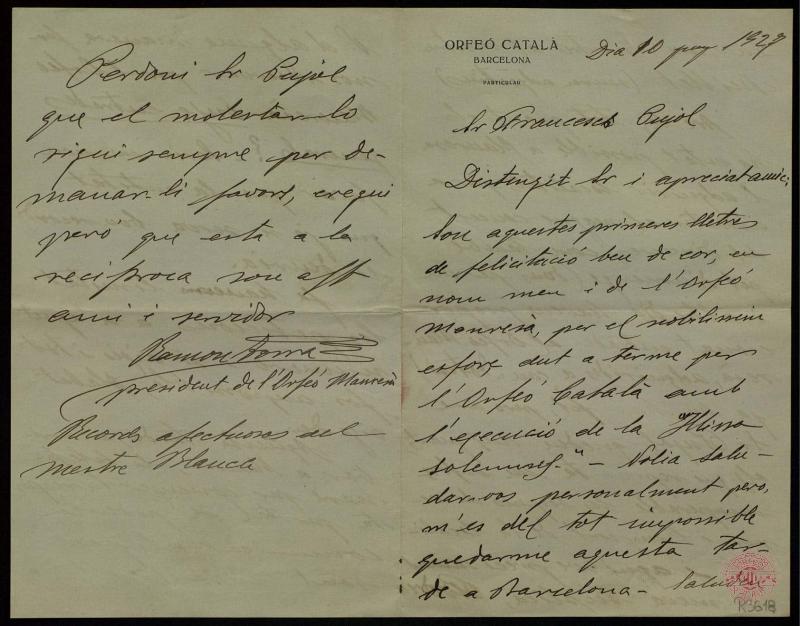 ORFEÓ CATALÀ
BARCELONA
PARTICULAR
Dia 10 1927
Sr Francesch Pujol
Distingit Sr i apreciat amic:
Son aquestes primeres lletres
de felicitació ben de cor, en
nom meu i de l'Orfeó
Manresà, per el nobilissim
esforç dut a terme per
l'Orfeó Català amb
l'execució de la "Missa
solemnis." – Volia salu-
dar-vos personalment pero,
m'es del tot impossible
quedarme aquesta tar-
de a Barcelona –
R3618
Perdoni Sr Pujol
que el molestar-lo
sigui sempre per de-
manar-li favors, cregui
però que està a la
recíproca son aff
amic i servidor
Ramon
president de l'Orfeó Manresà
Records afectuosos del
mestre Blanch